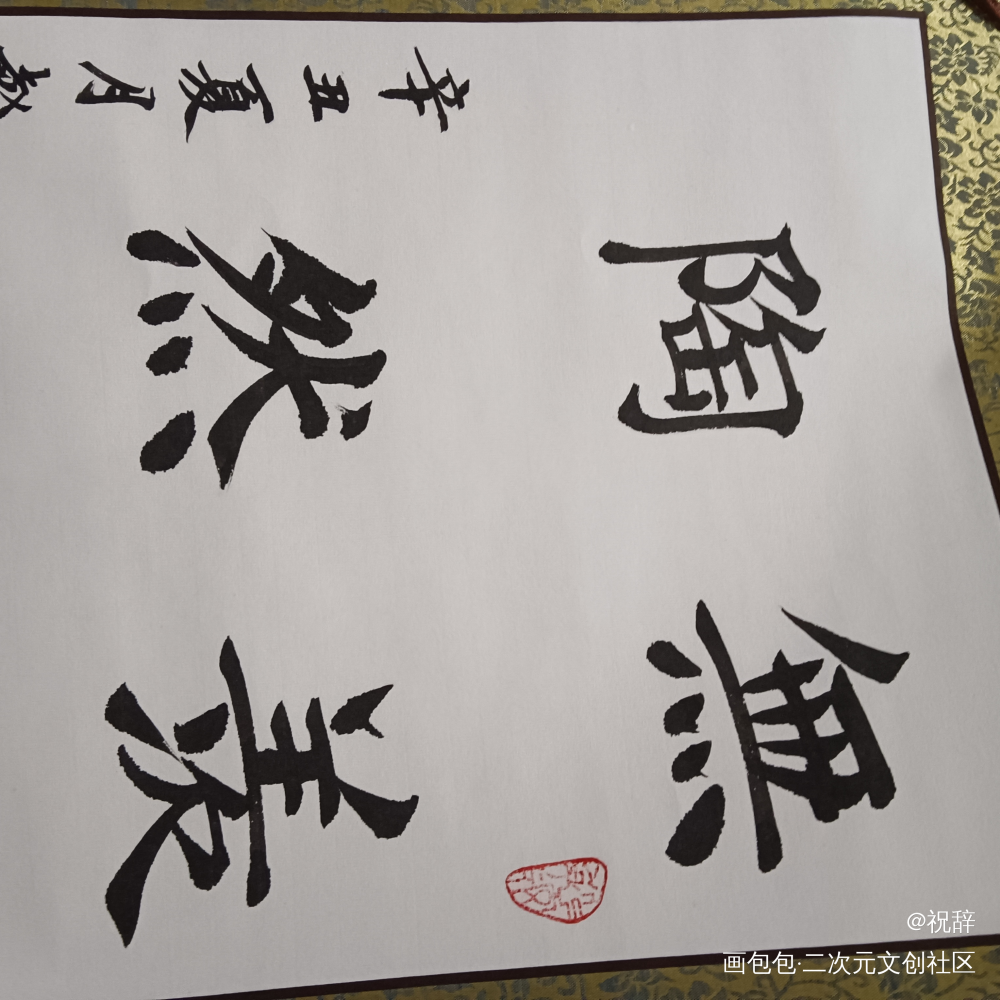 無羡
陶然
辛丑夏月
@祝辞
画包包·二次元文创社区